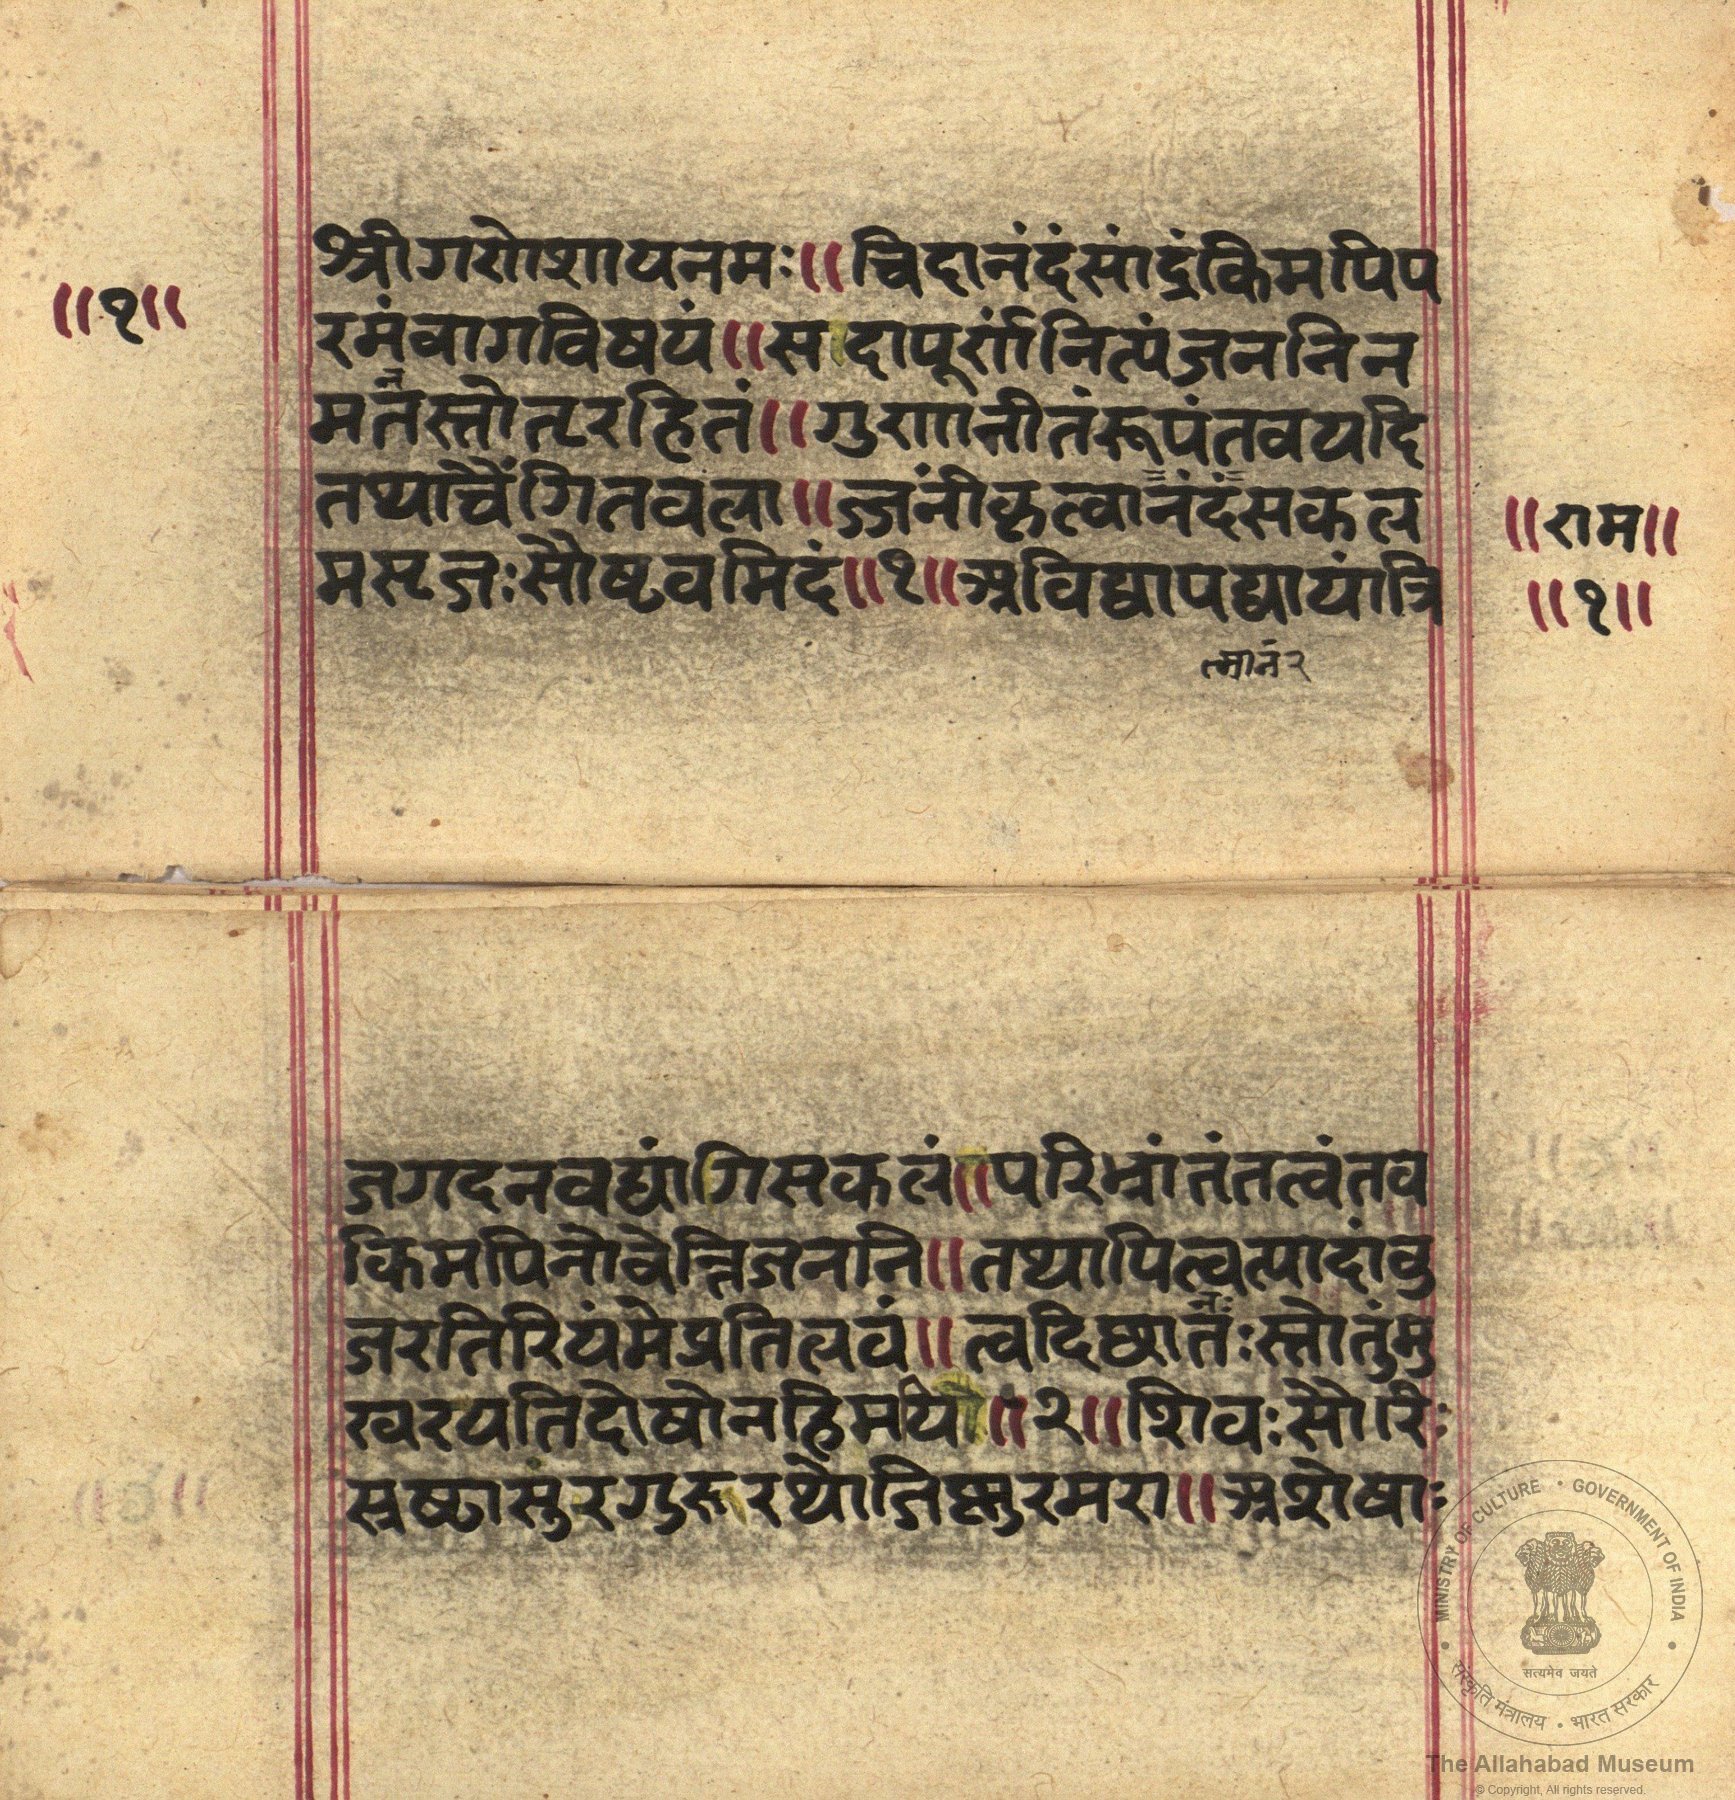 श्रीगणेशायनमः॥चिदानंदंसांद्रंकिमपिप
॥१॥
रमंवागविषयं॥सदापूर्णंनित्यंजननिन
मतंस्तोतृरहितं॥गुणानीतंरूपंतवयदि
तथाचैंगितवला॥ज्जनीकृत्वानंदंसकल
॥राम॥
मसृजःसौष्टवमिदं॥१॥अविद्यापद्यायांत्रि
॥१॥
त्मानं२
जगदनवद्यांगिसकलं॥परिभ्रांतंतत्वंतव
किमपिनोवेन्निजननि॥तथापित्वत्पादांवु
जरतिरियंमेप्रतिलवं॥त्वदिछातंःस्तोतुंमु
खरयतिदोषोनहिमयि॥२॥शिवःसौरिः
स्रष्टासुरगुरूरथोजिष्णुरमरा॥अशेषाः
MINISTRY OF CULTURE • GOVERNMENT OF INDIA
सत्यमेव जयते
संस्कृति मंत्रालय • भारत सरकार
The Allahabad Museum
© Copyright, All rights reserved.